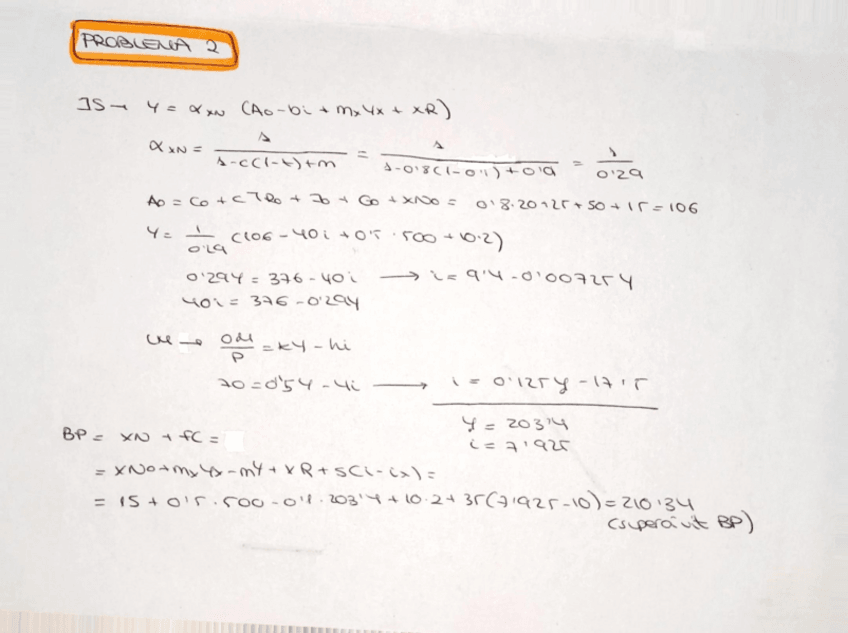 PROBLEMA 2
IS → Y = α XN (Ao - bi + mxYx + XR)
α XN = 1 / 1-c(1-t)+m = 1 / 1-0'8(1-0'1)+0'01 = 1 / 0'29
Ao = Co + cTRo + Io + Go + XNo = 0'8·20+25+50+15 = 106
Y = 1 / 0'29 (106 - 40i + 0'5 · 500 + 10·2)
0'29Y = 376 - 40i → i = 9'4 - 0'00725Y
40i = 376 - 0'29Y
LM → OM / P = kY - hi
70 = 0'5Y - 4i → i = 0'125Y - 17'5
Y = 203'4
i = 7'925
BP = XN + FC =
= XNo + mxYx - mY + XR + s(i - ix) =
= 15 + 0'5 · 500 - 0'1 · 203'4 + 10·2 + 35(7'925 - 10) = 210'34
(superávit BP)